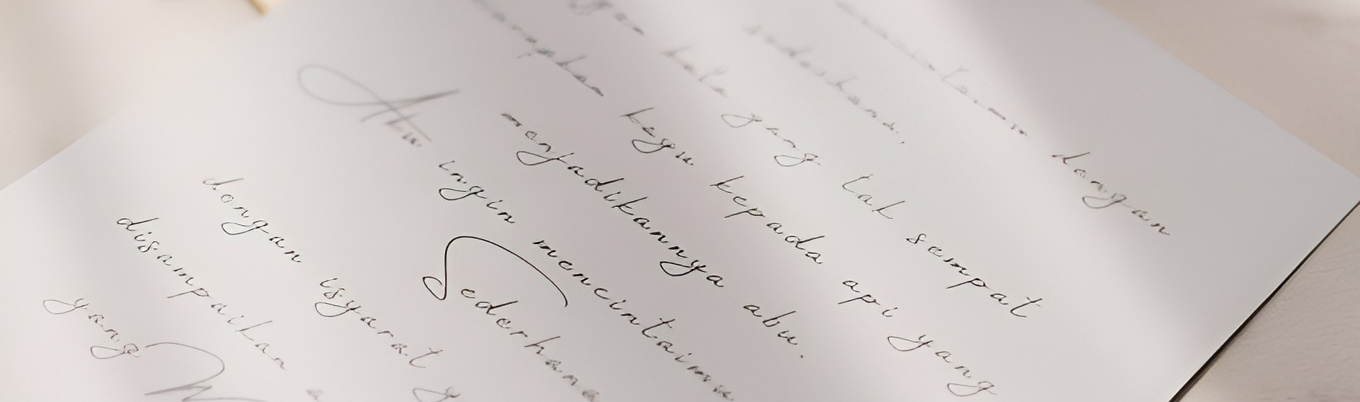 mencintaimu dengan
sederhana,
dengan kata yang tak sempat
kayu kepada api yang
menjadikannya abu.
Aku ingin mencintaimu
Sederhana
dengan isyarat y
disampaikan
yang M